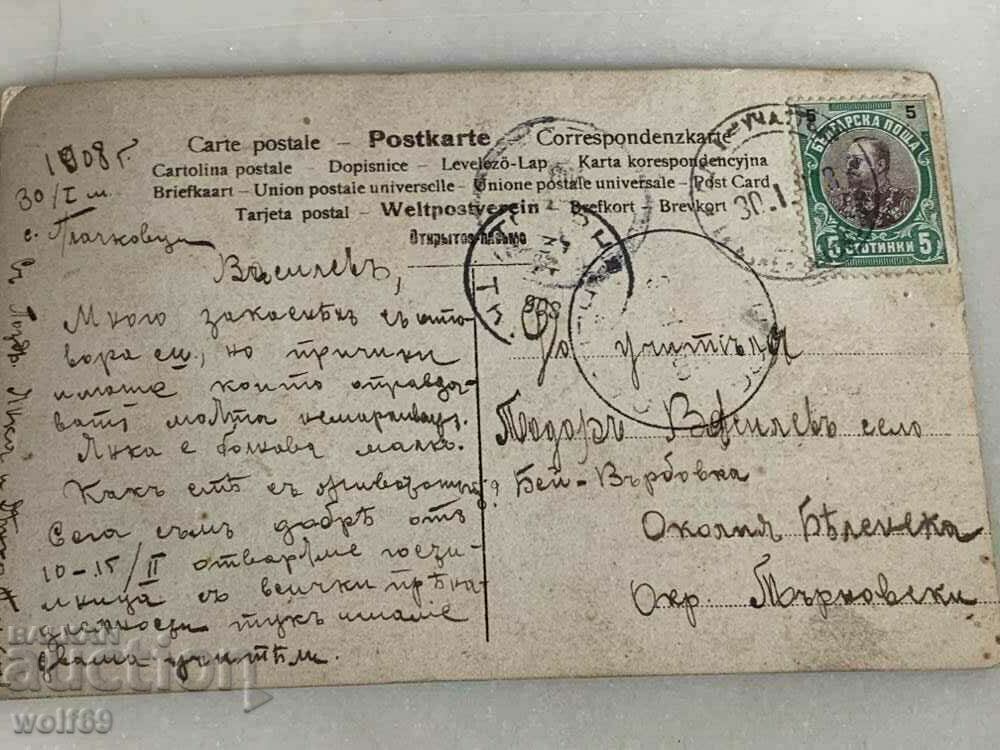 Carte postale – Postkarte – Correspondenzkarte
Cartolina postale – Dopisnice – Levelező-Lap – Karta korespondencyjna
Briefkaart – Union postale universelle – Unione postale universale – Post Card
Tarjeta postal – Weltpostverein – Brefkort – Brevkort
Открытое письмо
1908 г.
30/I м.
с. Плачковци
Василевъ,
Много закъснѣхъ съ отго-
вора си, но причини
имаше които оправдо-
ватъ моята
Янка е болнова малко.
Какъ стѣ съ животътъ?
Сега съмъ добрѣ отъ
10–15/II отваряме гости-
лница съ всички
тукъ имаме
двама учители.
До учителя
Тодоръ Василевъ село
Бей-Върбовка
Околия Бѣленска
Окр. Търновски
5 5
БЪЛГАРСКА ПОЩА
5 СТОТИНКИ 5
30.1
908
BALKAN
auction
wolf69